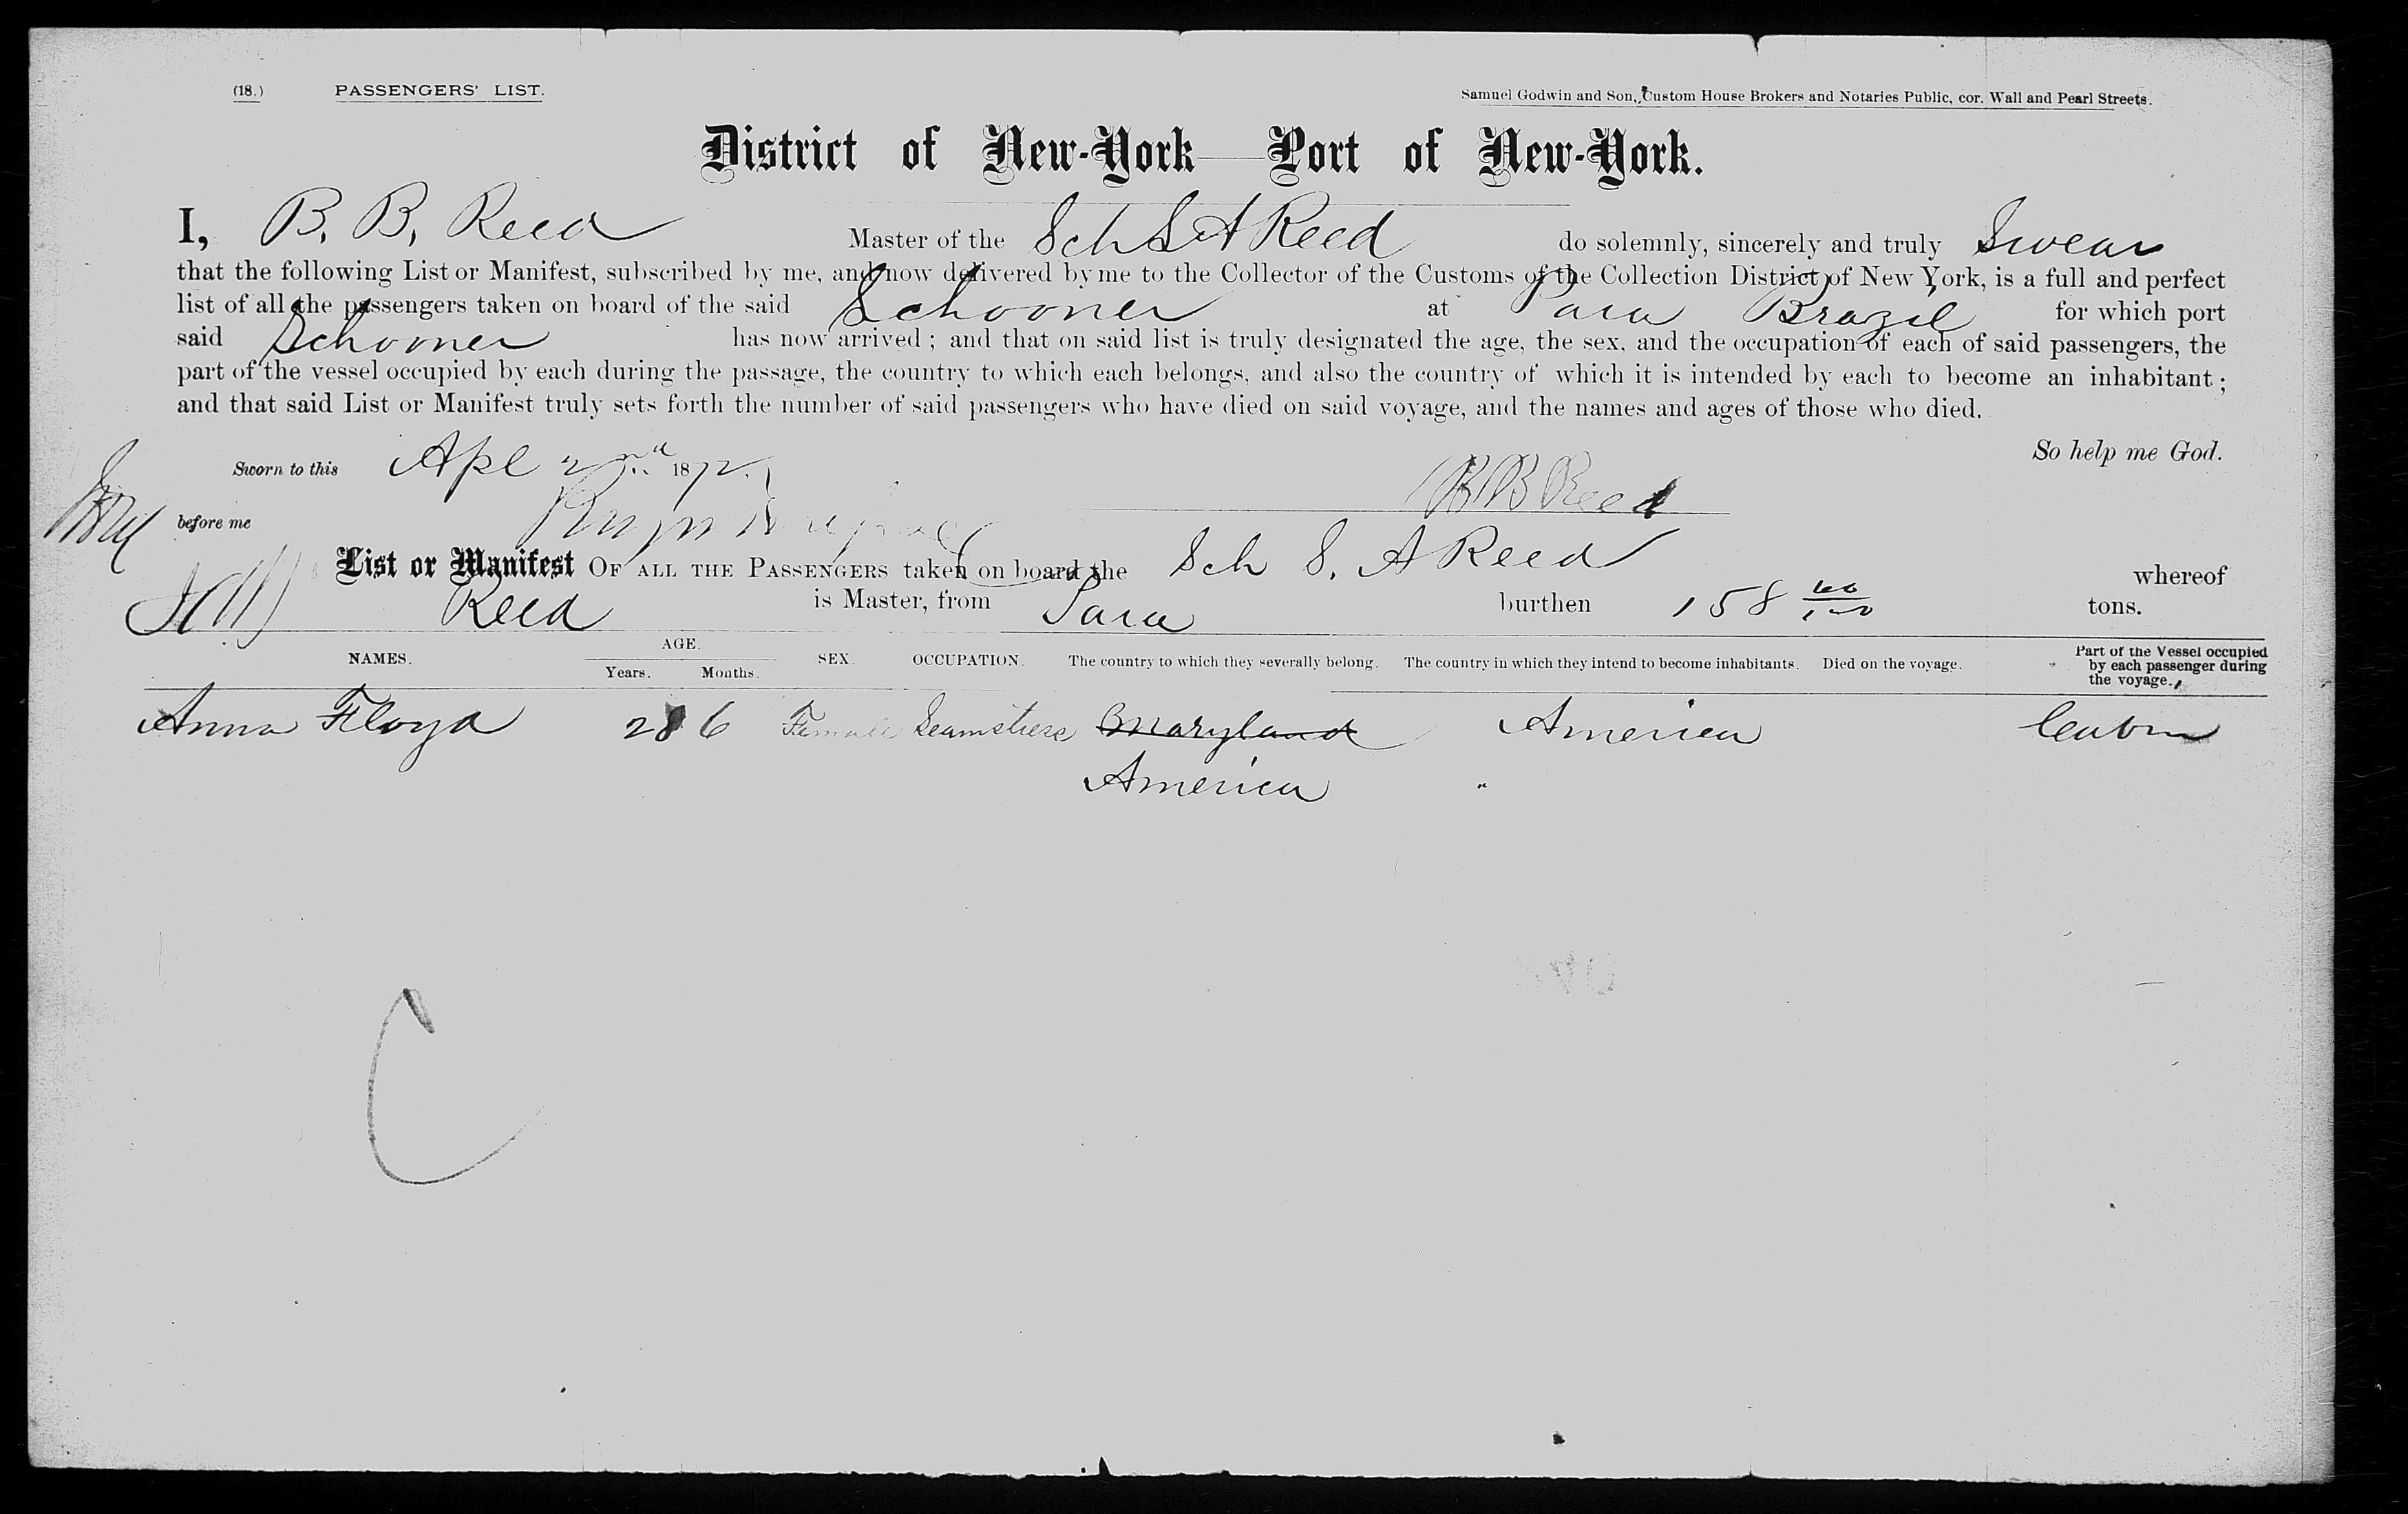 (18.) PASSENGERS' LIST. Samuel Godwin and Son, Custom House Brokers and Notaries Public, cor. Wall and Pearl Streets.
District of New-York—Port of New-York.
I, B. B. Reed Master of the Sch S A Reed do solemnly, sincerely and truly Swear
that the following List or Manifest, subscribed by me, and now delivered by me to the Collector of the Customs of the Collection District of New York, is a full and perfect
list of all the passengers taken on board of the said Schooner at Para Brazil for which port
said Schooner has now arrived; and that on said list is truly designated the age, the sex, and the occupation of each of said passengers, the
part of the vessel occupied by each during the passage, the country to which each belongs, and also the country of which it is intended by each to become an inhabitant;
and that said List or Manifest truly sets forth the number of said passengers who have died on said voyage, and the names and ages of those who died.
So help me God.
Sworn to this Apl 2nd 1872.
B B Reed
before me
List or Manifest OF ALL THE PASSENGERS taken on board the Sch S. A Reed whereof
Reed is Master, from Para burthen 158 60/100 tons.
NAMES. AGE. Years. Months. SEX. OCCUPATION. The country to which they severally belong. The country in which they intend to become inhabitants. Died on the voyage. Part of the Vessel occupied by each passenger during the voyage.
Anna Floyd 28 6 Female Seamstress Maryland America Cabin
America "
C